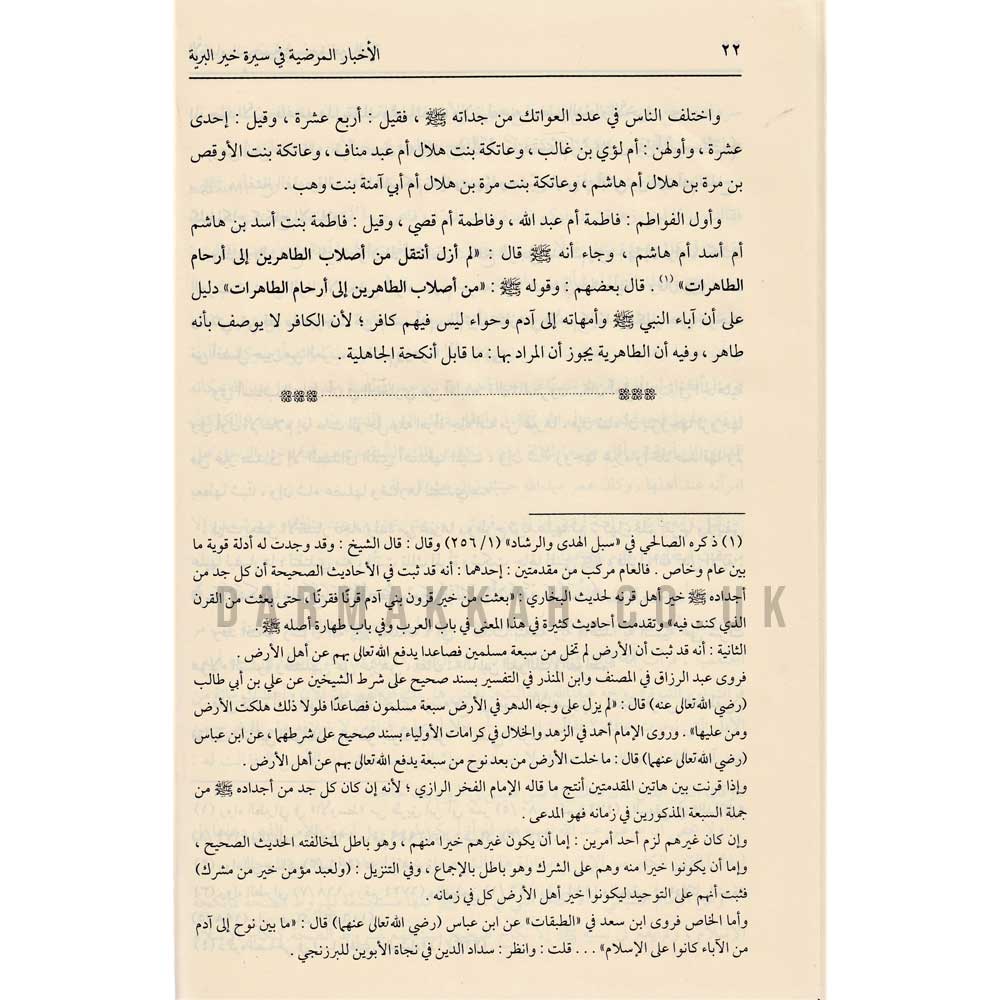 ٢٢
الأخبار المرضية في سيرة خير البرية
واختلف الناس في عدد العواتك من جداته ﷺ ، فقيل : أربع عشرة ، وقيل : إحدى
عشرة ، وأولهن : أم لؤي بن غالب ، وعاتكة بنت هلال أم عبد مناف ، وعاتكة بنت الأوقص
بن مرة بن هلال أم هاشم ، وعاتكة بنت مرة بن هلال أم أبي آمنة بنت وهب .
وأول الفواطم : فاطمة أم عبد الله ، وفاطمة أم قصي ، وقيل : فاطمة بنت أسد بن هاشم
أم أسد أم هاشم ، وجاء أنه ﷺ قال : «لم أزل أنتقل من أصلاب الطاهرين إلى أرحام
الطاهرات» (١) . قال بعضهم : وقوله ﷺ : «من أصلاب الطاهرين إلى أرحام الطاهرات» دليل
على أن آباء النبي ﷺ وأمهاته إلى آدم وحواء ليس فيهم كافر ؛ لأن الكافر لا يوصف بأنه
طاهر ، وفيه أن الطاهرية يجوز أن المراد بها : ما قابل أنكحة الجاهلية .
(١) ذكره الصالحي في «سبل الهدى والرشاد» (١/ ٢٥٦) وقال : قال الشيخ : وقد وجدت له أدلة قوية ما
بين عام وخاص . فالعام مركب من مقدمتين : إحدهما : أنه قد ثبت في الأحاديث الصحيحة أن كل جد من
أجداده ﷺ خير أهل قرنه لحديث البخاري : «بعثت من خير قرون بني آدم قرنًا فقرنًا ، حتى بعثت من القرن
الذي كنت فيه» وتقدمت أحاديث كثيرة في هذا المعنى في باب العرب وفي باب طهارة أصله ﷺ .
DARMAKKAH.CO.UK
الثانية : أنه قد ثبت أن الأرض لم تخل من سبعة مسلمين فصاعدا يدفع الله تعالى بهم عن أهل الأرض .
فروى عبد الرزاق في المصنف وابن المنذر في التفسير بسند صحيح على شرط الشيخين عن علي بن أبي طالب
(رضي الله تعالى عنه) قال : «لم يزل على وجه الدهر في الأرض سبعة مسلمون فصاعدًا فلولا ذلك هلكت الأرض
ومن عليها» . وروى الإمام أحمد في الزهد والخلال في كرامات الأولياء بسند صحيح على شرطهما ، عن ابن عباس
(رضي الله تعالى عنهما) قال : ما خلت الأرض من بعد نوح من سبعة يدفع الله تعالى بهم عن أهل الأرض .
وإذا قرنت بين هاتين المقدمتين أنتج ما قاله الإمام الفخر الرازي ؛ لأنه إن كان كل جد من أجداده ﷺ من
جملة السبعة المذكورين في زمانه فهو المدعى .
وإن كان غيرهم لزم أحد أمرين : إما أن يكون غيرهم خيرا منهم ، وهو باطل لمخالفته الحديث الصحيح ،
وإما أن يكونوا خيرا منه وهم على الشرك وهو باطل بالإجماع ، وفي التنزيل : (ولعبد مؤمن خير من مشرك)
فثبت أنهم على التوحيد ليكونوا خير أهل الأرض كل في زمانه .
وأما الخاص فروى ابن سعد في «الطبقات» عن ابن عباس (رضي الله تعالى عنهما) قال : «ما بين نوح إلى آدم
من الآباء كانوا على الإسلام» . . . قلت : وانظر : سداد الدين في نجاة الأبوين للبرزنجي .